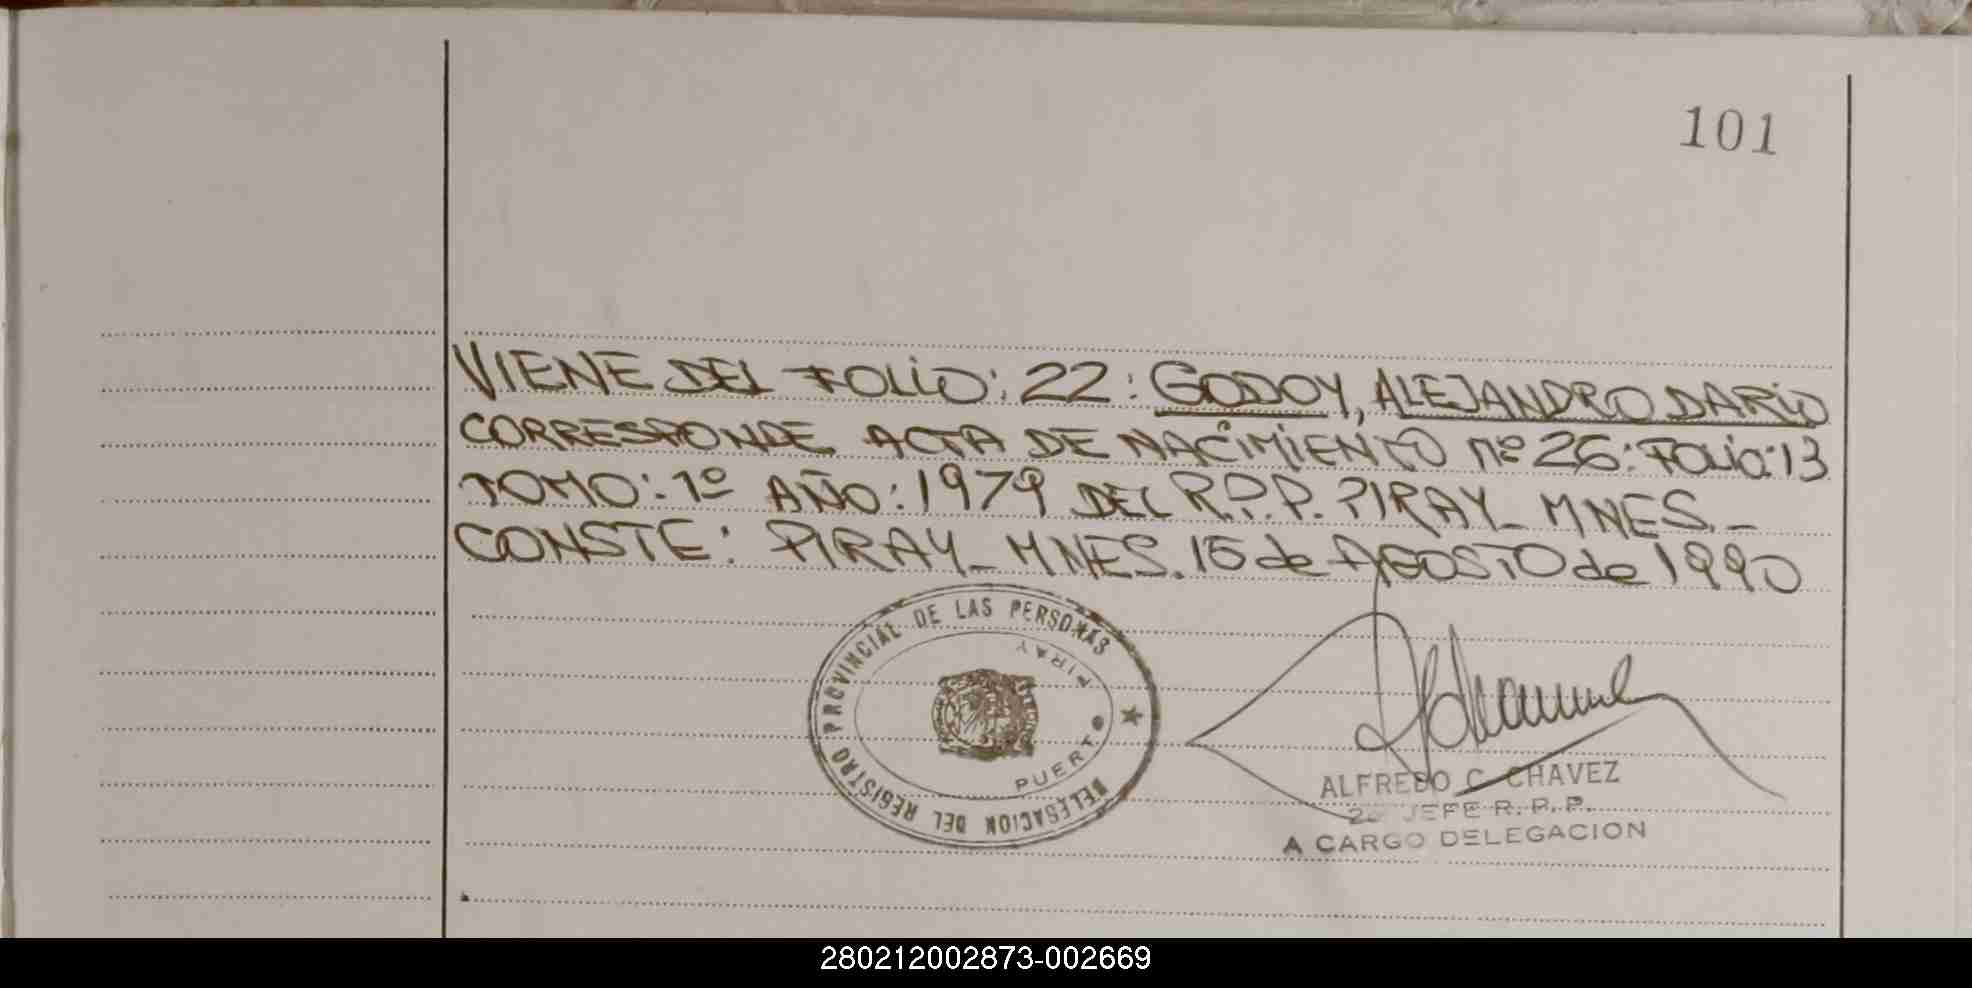 101
VIENE DEL FOLIO: 22: GODOY, ALEJANDRO DARIO
CORRESPONDE ACTA DE NACIMIENTO Nº 26: FOLIO: 13
TOMO: 1º AÑO: 1979 DEL R.P.P. PIRAY_MNES._
CONSTE: PIRAY_MNES. 15 de AGOSTO de 1990
DELEGACION DEL REGISTRO PROVINCIAL DE LAS PERSONAS
PUERTO PIRAY
ALFREDO C. CHAVEZ
JEFE R. P. P.
A CARGO DELEGACION
280212002873-002669